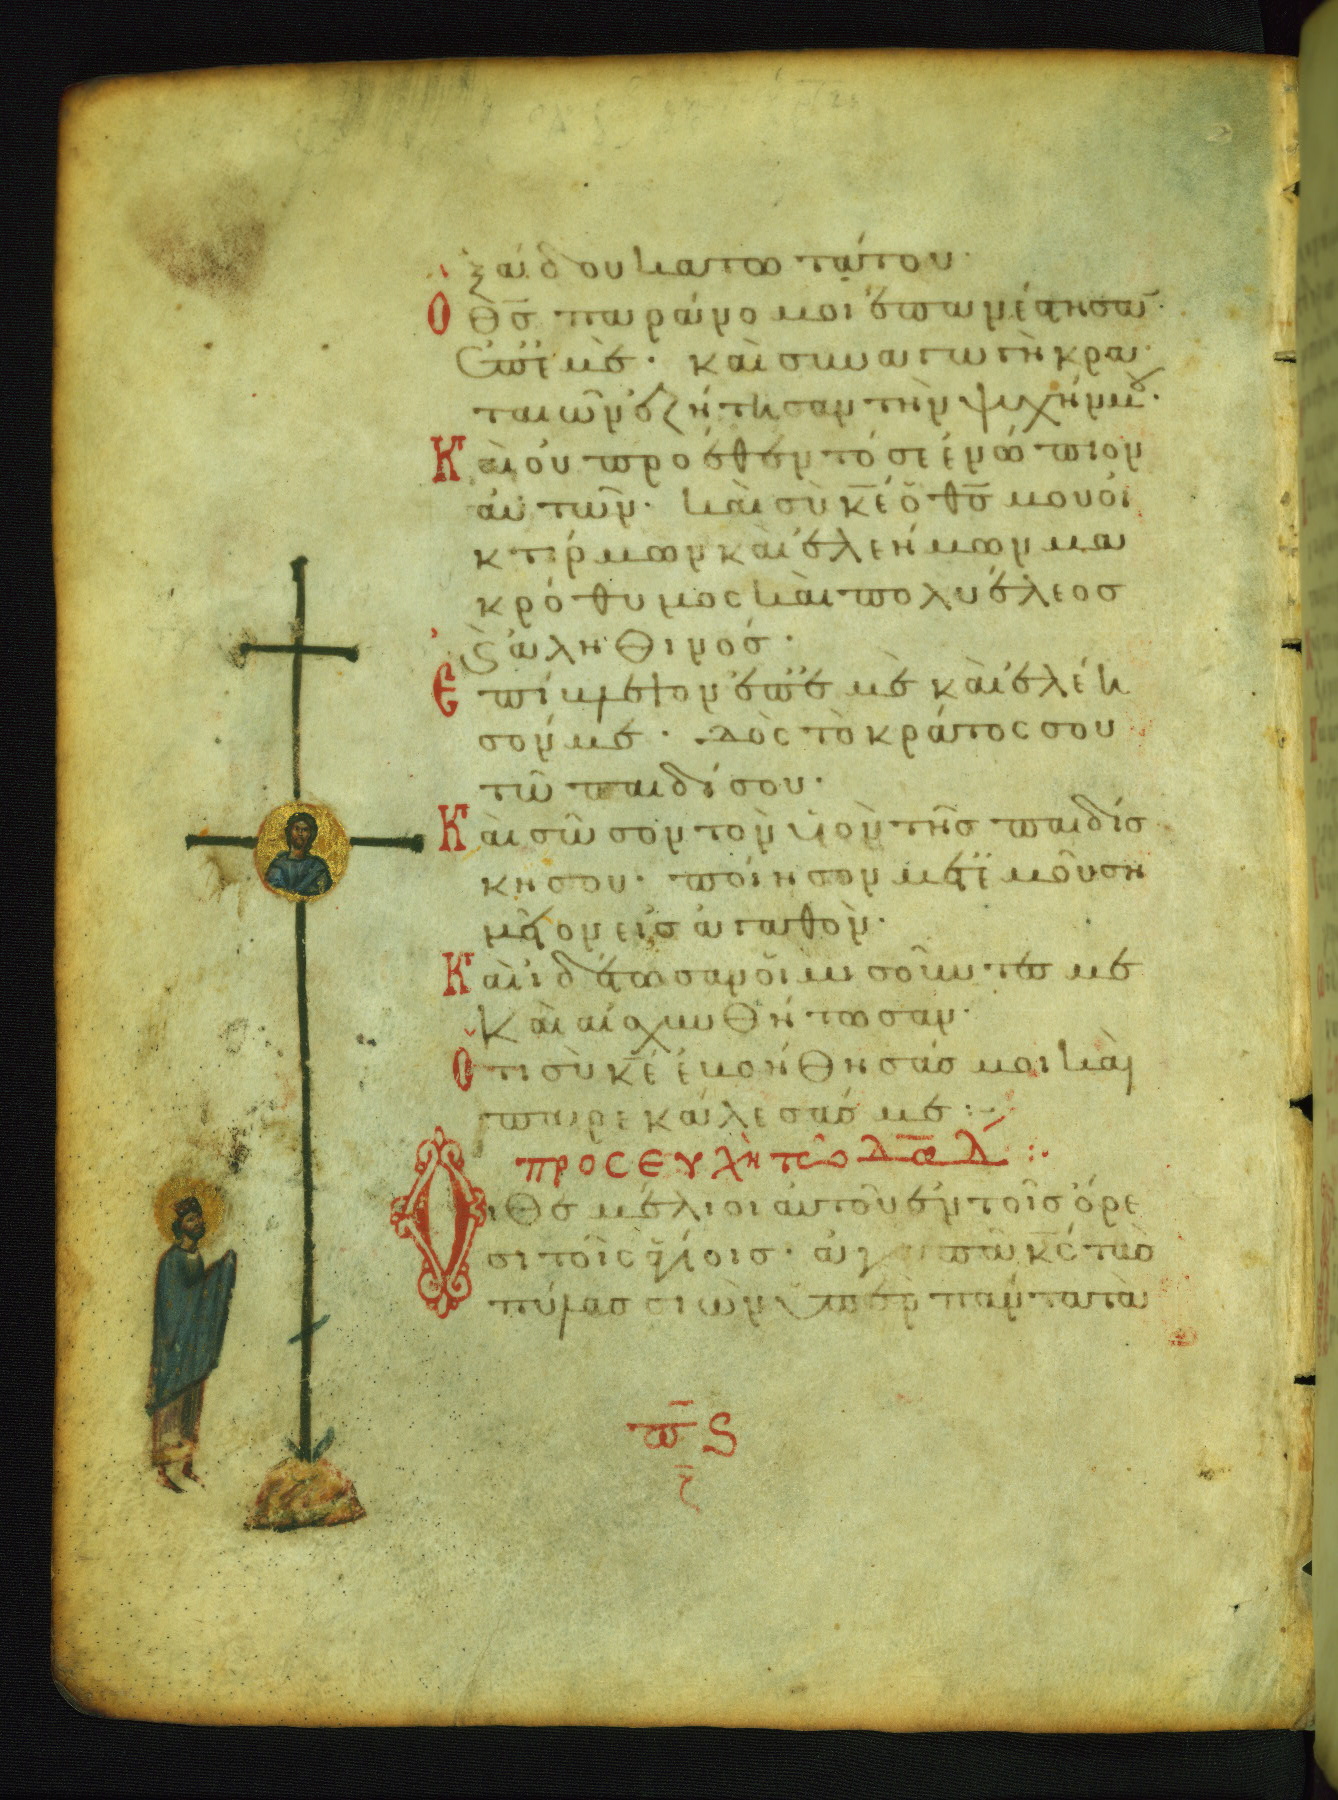 ἐξ ἅδου κατωτάτου·
Ὁ θς παράνομοι ἐπανέστησαν
ἐπ' ἐμέ· καὶ συναγωγὴ κρα
ταιῶν ἐζήτησαν τὴν ψυχήν μου·
Καὶ οὐ προέθεντό σε ἐνώπιον
αὐτῶν· καὶ σὺ κε ὁ θς μου οἰ
κτίρμων καὶ ἐλεήμων μα
κρόθυμος καὶ πολυέλεος
καὶ ἀληθινός·
Ἐπίβλεψον ἐπ' ἐμὲ καὶ ἐλέη
σόν με· δὸς τὸ κράτος σου
τῶ παιδί σου·
Καὶ σῶσον τὸν υἱὸν τῆς παιδίσ
κης σου· ποίησον μετ' ἐμοῦ ση
μεῖον εἰς ἀγαθὸν·
Καὶ ἰδέτωσαν οἱ μισοῦντές με
καὶ αἰσχυνθήτωσαν·
Ὅτι σὺ κε ἐβοήθησάς μοι καὶ
παρεκάλεσάς με:
προσευχὴ τῶ δαδ:
Οἱ θεμέλιοι αὐτοῦ ἐν τοῖς ὄρε
σι τοῖς ἁγίοις· ἀγαπᾶ κς τὰς
πύλας σιὼν ὑπὲρ πάντα τὰ
πς